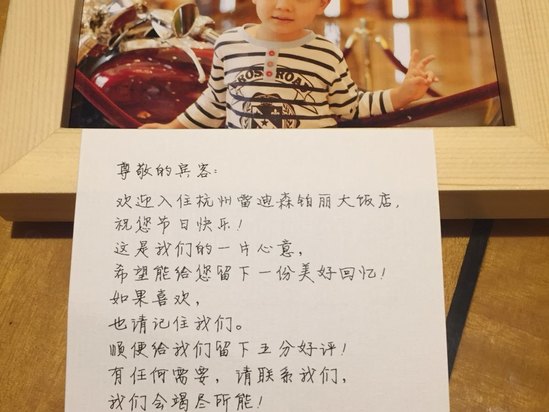 CROSS ROAD
尊敬的宾客:
欢迎入住杭州雷迪森铂丽大饭店,
祝您节日快乐!
这是我们的一片心意,
希望能给您留下一份美好回忆!
如果喜欢,
也请记住我们。
顺便给我们留下五分好评!
有任何需要,请联系我们,
我们会竭尽所能!